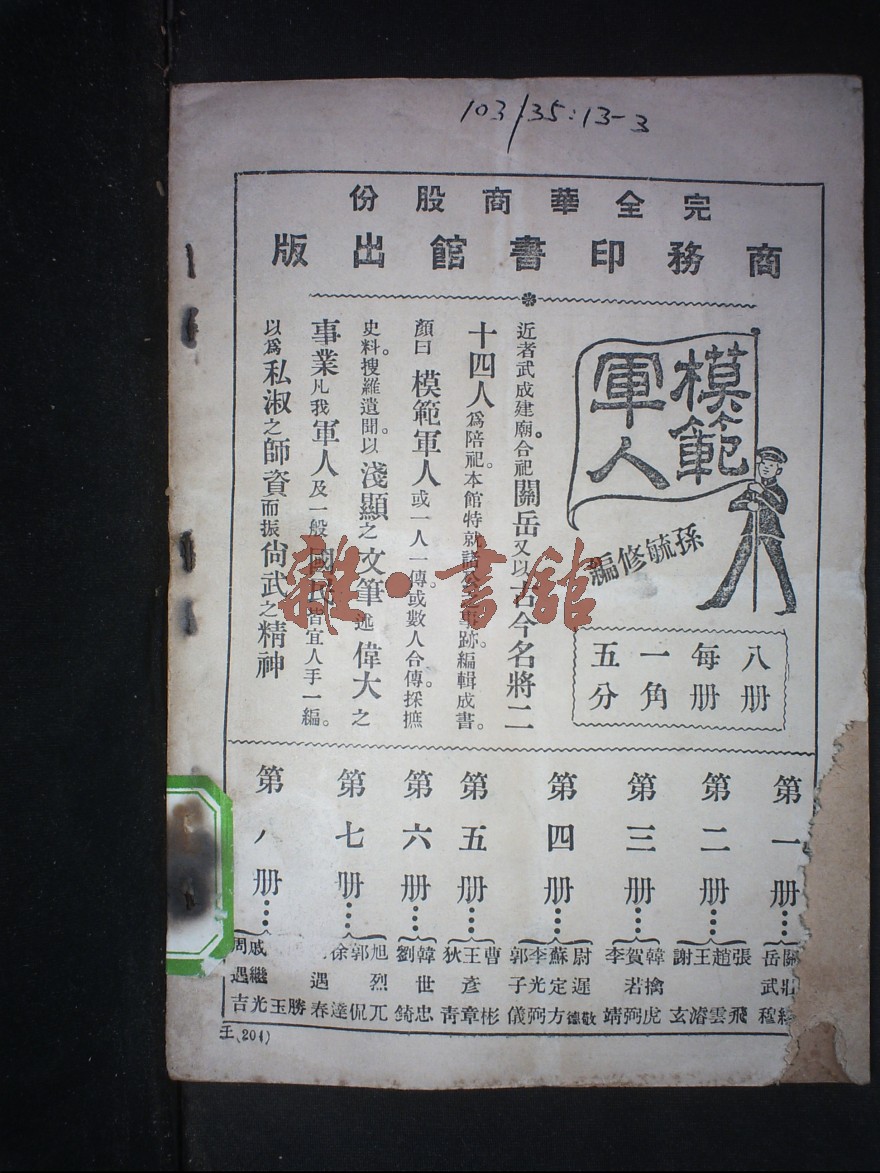 103/35:13-3
完全華商股份
商務印書館出版
模範
軍人
孫毓修編
八册
每册
一角
五分
近者武成建廟。合祀關岳又以古今名將二
十四人爲陪祀。本館特就諸公之事跡。編輯成書。
顏曰模範軍人或一人一傳。或數人合傳。採摭
史料。搜羅遺聞。以淺顯之文筆述偉大之
事業凡我軍人及一般國民皆宜人手一編。
以爲私淑之師資而振尙武之精神
雜·書館
第一册…關壯
岳武穆
第二册…張飛
趙雲
王濬
謝玄
第三册…韓擒虎
賀若弼
李靖
第四册…尉遲敬德
蘇定方
李光弼
郭子儀
第五册…曹彬
王彥章
狄青
第六册…韓世忠
劉錡
第七册…旭烈兀
郭侃
徐達
遇春
第八册…勝玉
戚繼光
周遇吉
王(204)